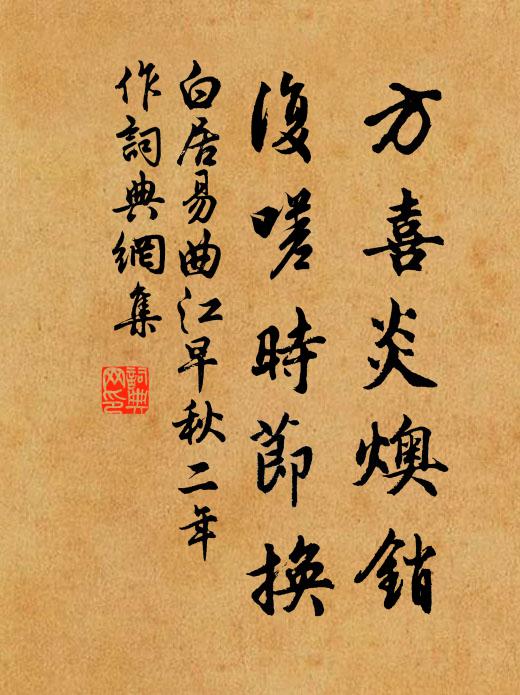 方喜炎燠銷
復嗟時節換
白居易曲江早秋二年
作詞典網集
詞典
网印